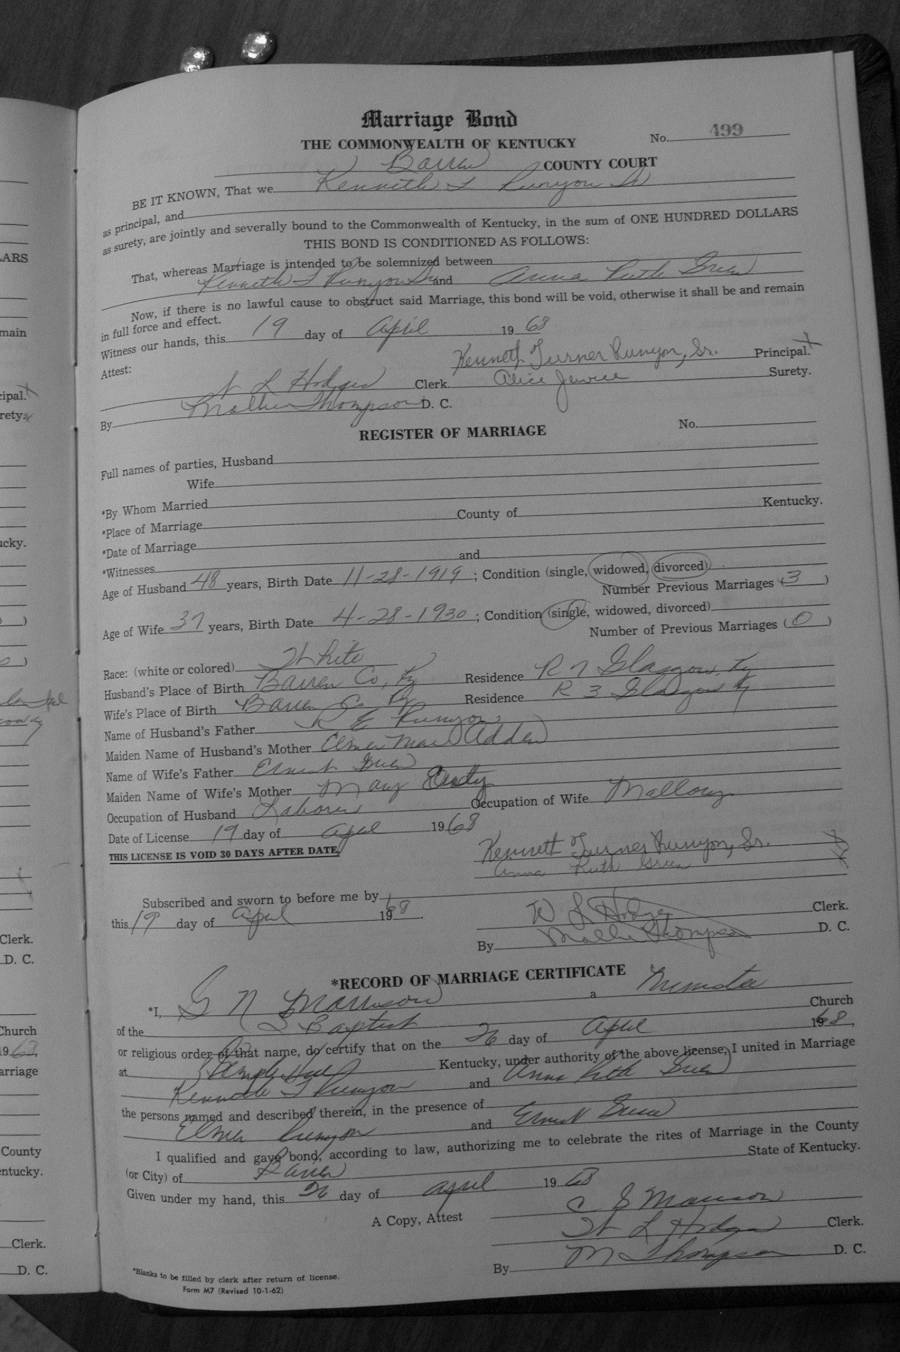 Marriage Bond
THE COMMONWEALTH OF KENTUCKY
No. 499
Barren COUNTY COURT
BE IT KNOWN, That we Kenneth T Runyon Sr
as principal, and
as surety, are jointly and severally bound to the Commonwealth of Kentucky, in the sum of ONE HUNDRED DOLLARS
THIS BOND IS CONDITIONED AS FOLLOWS:
That, whereas Marriage is intended to be solemnized between
Kenneth T Runyon Sr and Anna Ruth Green
Now, if there is no lawful cause to obstruct said Marriage, this bond will be void, otherwise it shall be and remain
in full force and effect.
Witness our hands, this 19 day of April 1968
Attest: Kenneth Turner Runyon, Sr. Principal. X
W L Hodges Clerk Alice Surety.
By Mallie Thompson D. C.
REGISTER OF MARRIAGE
No.
Full names of parties, Husband
Wife
*By Whom Married
*Place of Marriage County of Kentucky.
*Date of Marriage
*Witnesses and
Age of Husband 48 years, Birth Date 11-28-1919; Condition (single, widowed, divorced)
Number Previous Marriages (3)
Age of Wife 37 years, Birth Date 4-28-1930; Condition (single, widowed, divorced)
Number of Previous Marriages (0)
Race: (white or colored) White
Husband's Place of Birth Barren Co, Ky Residence R 7 Glasgow, Ky
Wife's Place of Birth Barren Co Ky Residence R 3 Glasgow Ky
Name of Husband's Father R E Runyon
Maiden Name of Husband's Mother Elmer Mae
Name of Wife's Father Ernest Green
Maiden Name of Wife's Mother Mary
Occupation of Husband Laborer Occupation of Wife Mallory
Date of License 19 day of April 1968
THIS LICENSE IS VOID 30 DAYS AFTER DATE.
Kenneth Turner Runyon, Sr. X
Anna Ruth Green X
Subscribed and sworn to before me by
this 19 day of April 1968
W L Hodges Clerk.
By Mallie Thompson D. C.
*RECORD OF MARRIAGE CERTIFICATE
*I, G N Morrison a Minister
of the Baptist Church
or religious order of that name, do certify that on the 26 day of April 1968,
at Temple Hill Kentucky, under authority of the above license, I united in Marriage
Kenneth T Runyon and Anna Ruth Green
the persons named and described therein, in the presence of
Elmer Runyon and Ernest Green
I qualified and gave bond, according to law, authorizing me to celebrate the rites of Marriage in the County
(or City) of Barren State of Kentucky.
Given under my hand, this 26 day of April 1968
A Copy, Attest
W L Hodges Clerk.
By M Thompson D. C.
*Blanks to be filled by clerk after return of license.
Form M7 (Revised 10-1-62)